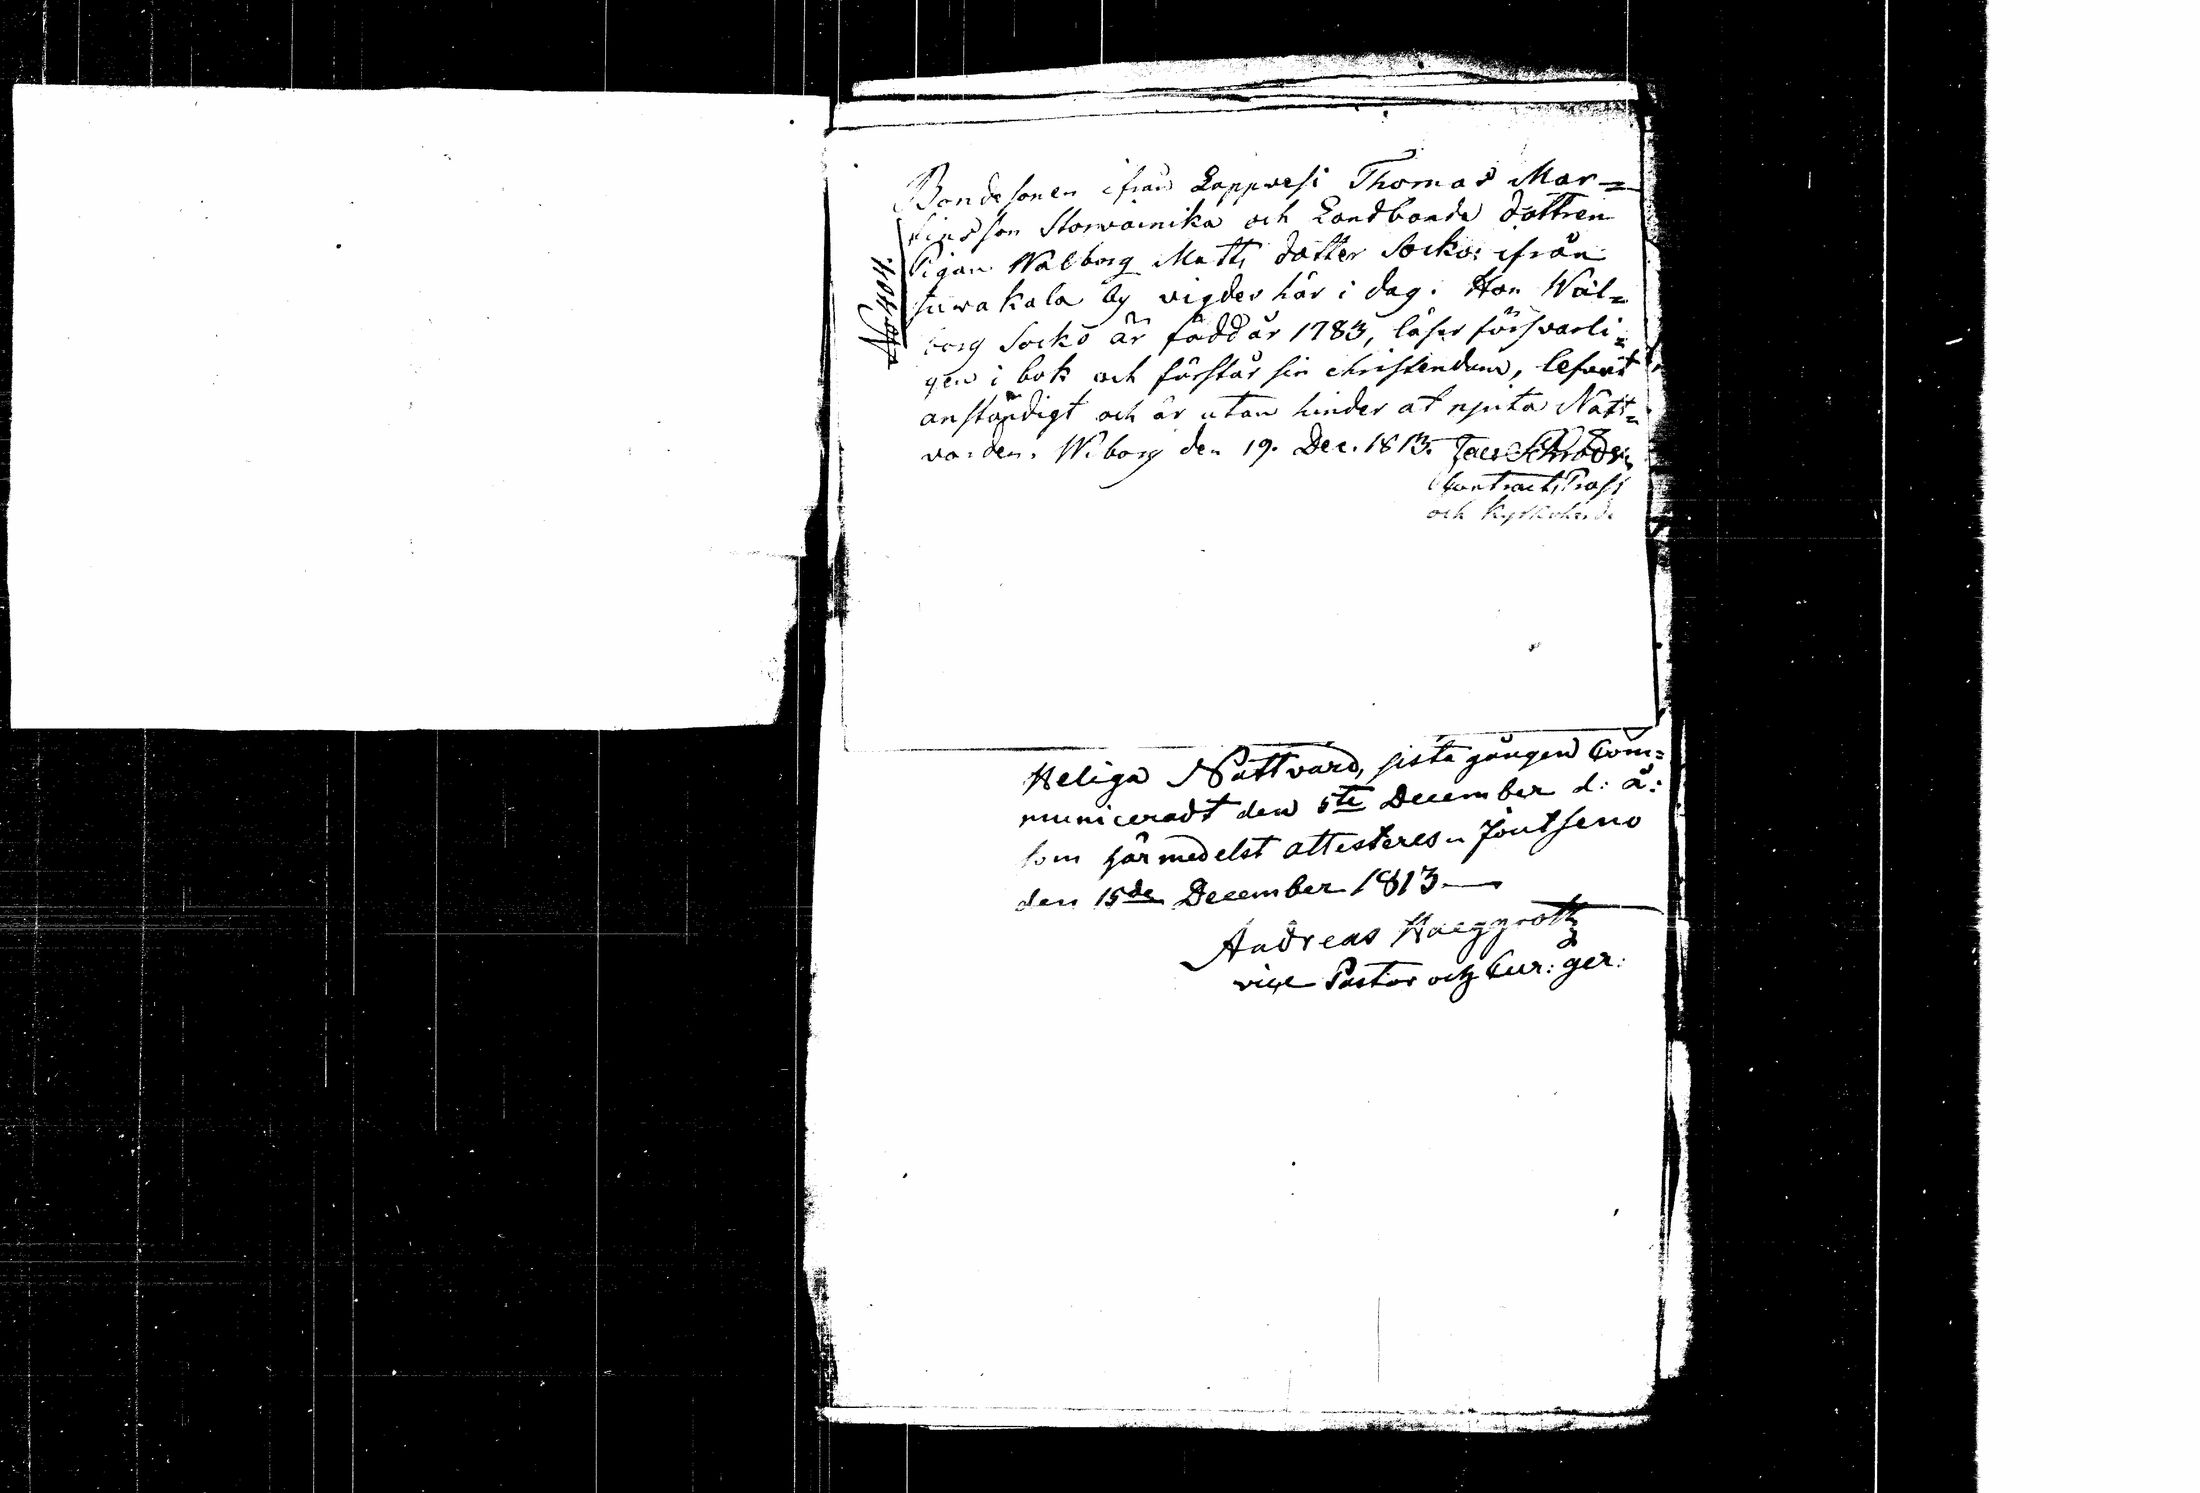 No 404.
Bondesonen ifrån Lappvesi Thomas Mar=
tinsson Storvainika och Landbonde dottren
Pigan Walborg Matts dotter Socko: ifrån
Juvakala by vigdes här i dag. Hon Wal=
borg Socko är född år 1783, läser försvarli=
gen i bok och förstår sin christendom, lefvat
anständigt och är utan hinder at njuta Natt=
varden. Wiborg den 19. Dec. 1813.
Contracts Prost
och Kyrkoherde
Heliga Nattvard, sista gången Com=
municeradt den 5te December d: å:
som härmedelst attesteres. Joutseno
den 15de December 1813
Andreas Haeggroth
vice Pastor och Cur: ger: